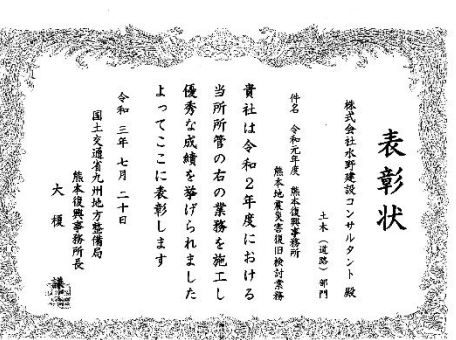 表彰状
株式会社水野建設コンサルタント 殿
土木（道路）部門
件名 令和元年度 熊本復興事務所
熊本地震災害復旧検討業務
貴社は令和２年度における
当所所管の右の業務を施工し
優秀な成績を挙げられました
よってここに表彰します
令和 三年 七月 二十日
国土交通省九州地方整備局
熊本復興事務所長
大榎 謙